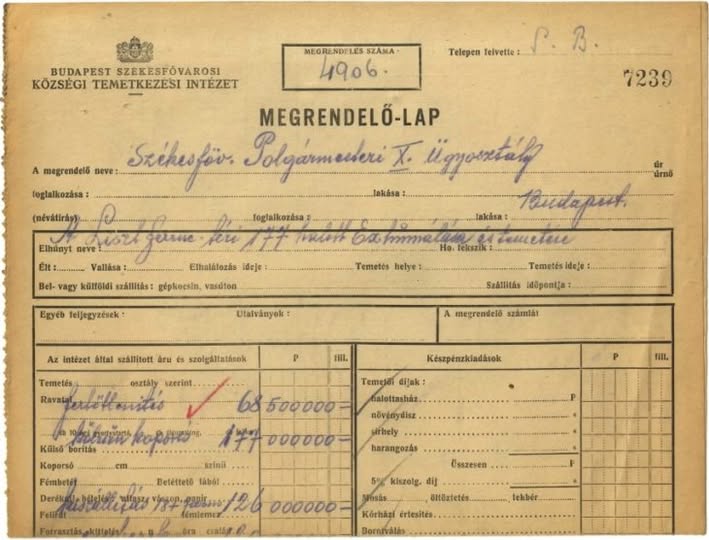 BUDAPEST SZÉKESFŐVÁROSI
KÖZSÉGI TEMETKEZÉSI INTÉZET
MEGRENDELÉS SZÁMA
4906.
Telepen felvette : P. B.
7239
MEGRENDELŐ-LAP
A megrendelő neve : Székesföv. Polgármesteri X. Ügyosztály úr
úrnő
foglalkozása : lakása :
(névátirás) foglalkozása : lakása : Budapest.
A Liszt Ferenc-téri 177 halott Exhumálása és temetése
Elhúnyt neve : Ho. fekszik :
Élt : Vallása : Elhalálozás ideje : Temetés helye : Temetés ideje :
Bel- vagy külföldi szállítás : gépkocsin, vasúton Szállítás időpontja :
Egyéb feljegyzések : Utalványok : A megrendelő számlái
Az intézet által szállított áru és szolgáltatások P fill. Készpénzkiadások P fill.
Temetés osztály szerint Temetői díjak :
Ravatal fertőtlenítés 68 500000= halottasház P
növénydísz "
177 000000= sirhely "
Külső borítás harangozás "
Koporsó cm színű Összesen P
Fémbetét Betéttető fából 5% kiszolg. díj "
126 000000= Mosás, öltöztetés lekbér
Felirat Kórházi értesítés
Forrasztás Bonválás